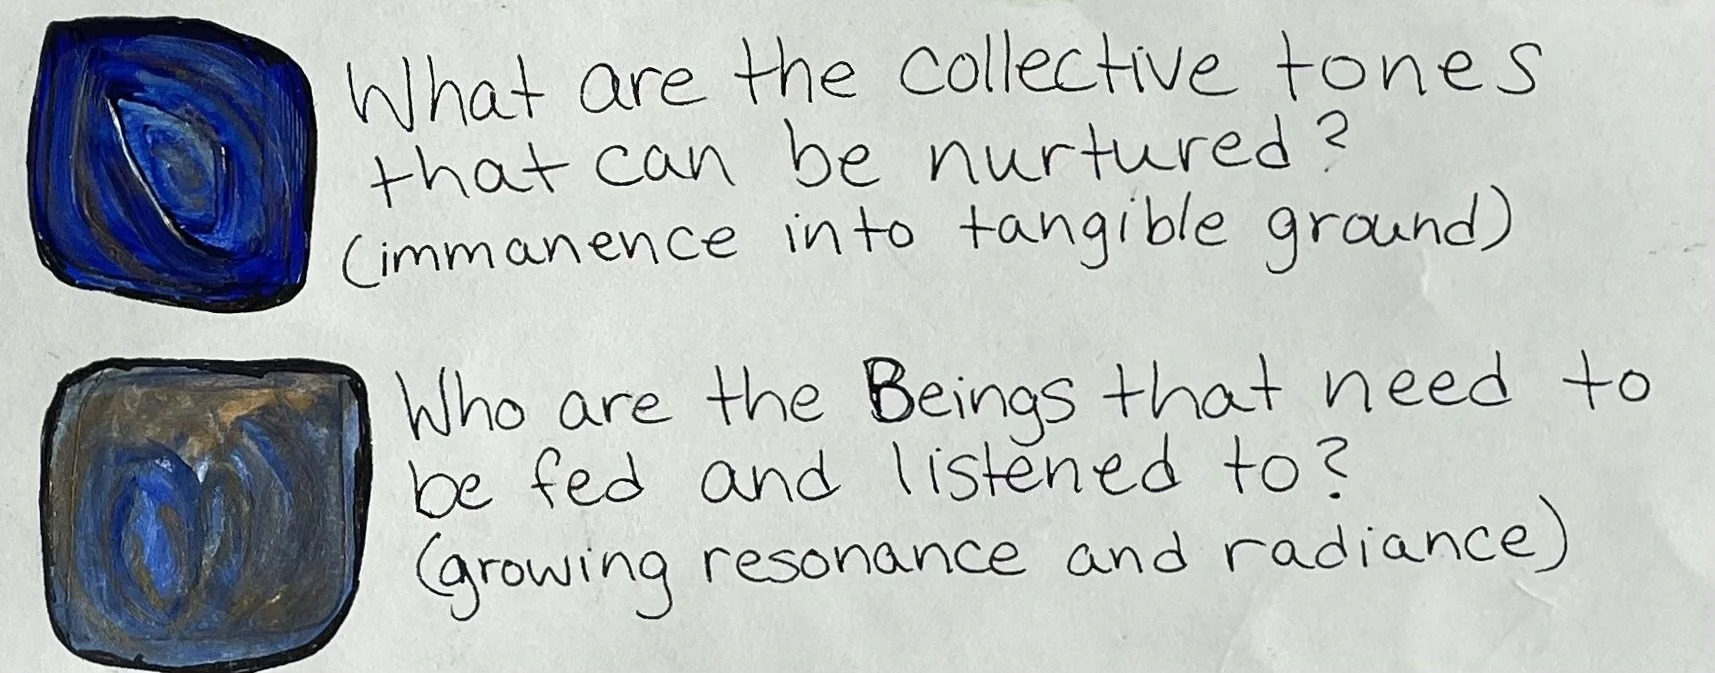 What are the collective tones
that can be nurtured?
(immanence into tangible ground)
Who are the Beings that need to
be fed and listened to?
(growing resonance and radiance)